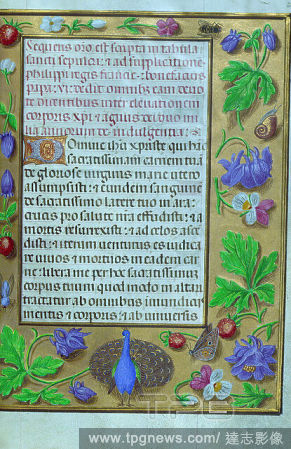 Sequens orō est scripta in tabula
sancti sepulcri: et ad supplicationē
philippi regis francie: bonefacius
papa: vi: dedit omnibus eam devo
te dicentibus inter elevationem
corporis xpi et agnus dei duo mi
lia annorum de indulgentia:
Domine ihū xpiste qui hāc
sacratissimam carnem tuā
de gloriose virginis marie utero
assumpsisti: et eundem sanguinē
de sacratissimo latere tuo in ara
crucis pro salute nrā effudisti: et a
mortis resurrexisti: et ad celos asce
disti: et iterum venturus es iudica
re vivos et mortuos in eadem car
ne: libera me per hoc sacratissimū
corpus tuum quod modo in altari
tractatur ab omnibus inmundici
mentis et corporis: et ab universis
TPG
www.tpgnews.com/ 達志影像